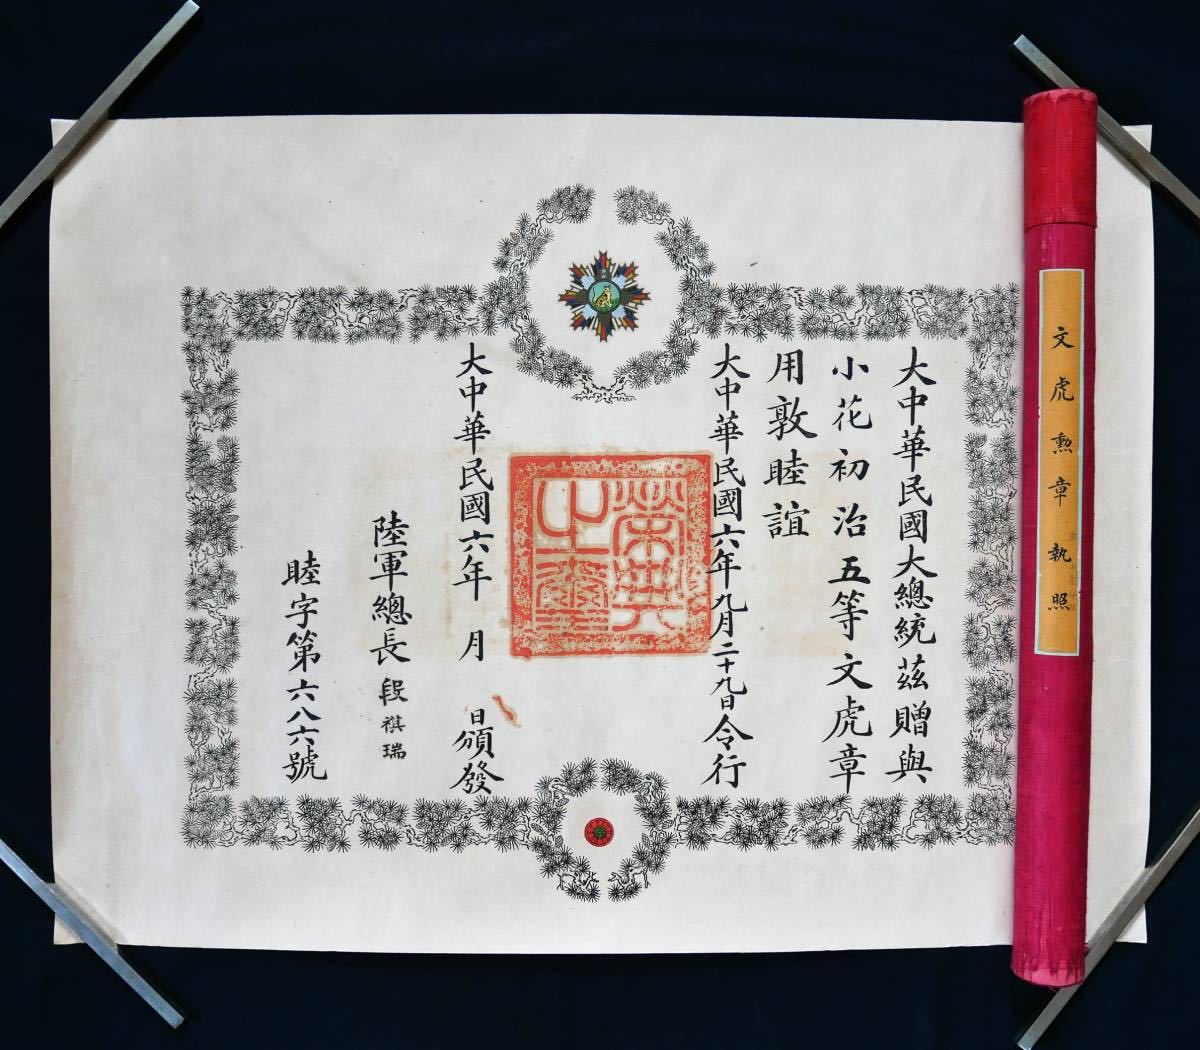 大中華民國大總統茲贈與
小花初治五等文虎章
用敦睦誼
大中華民國六年九月二十九日令行
榮典之璽
大中華民國六年 月 日頒發
陸軍總長 段祺瑞
睦字第六八六號
文虎勲章執照